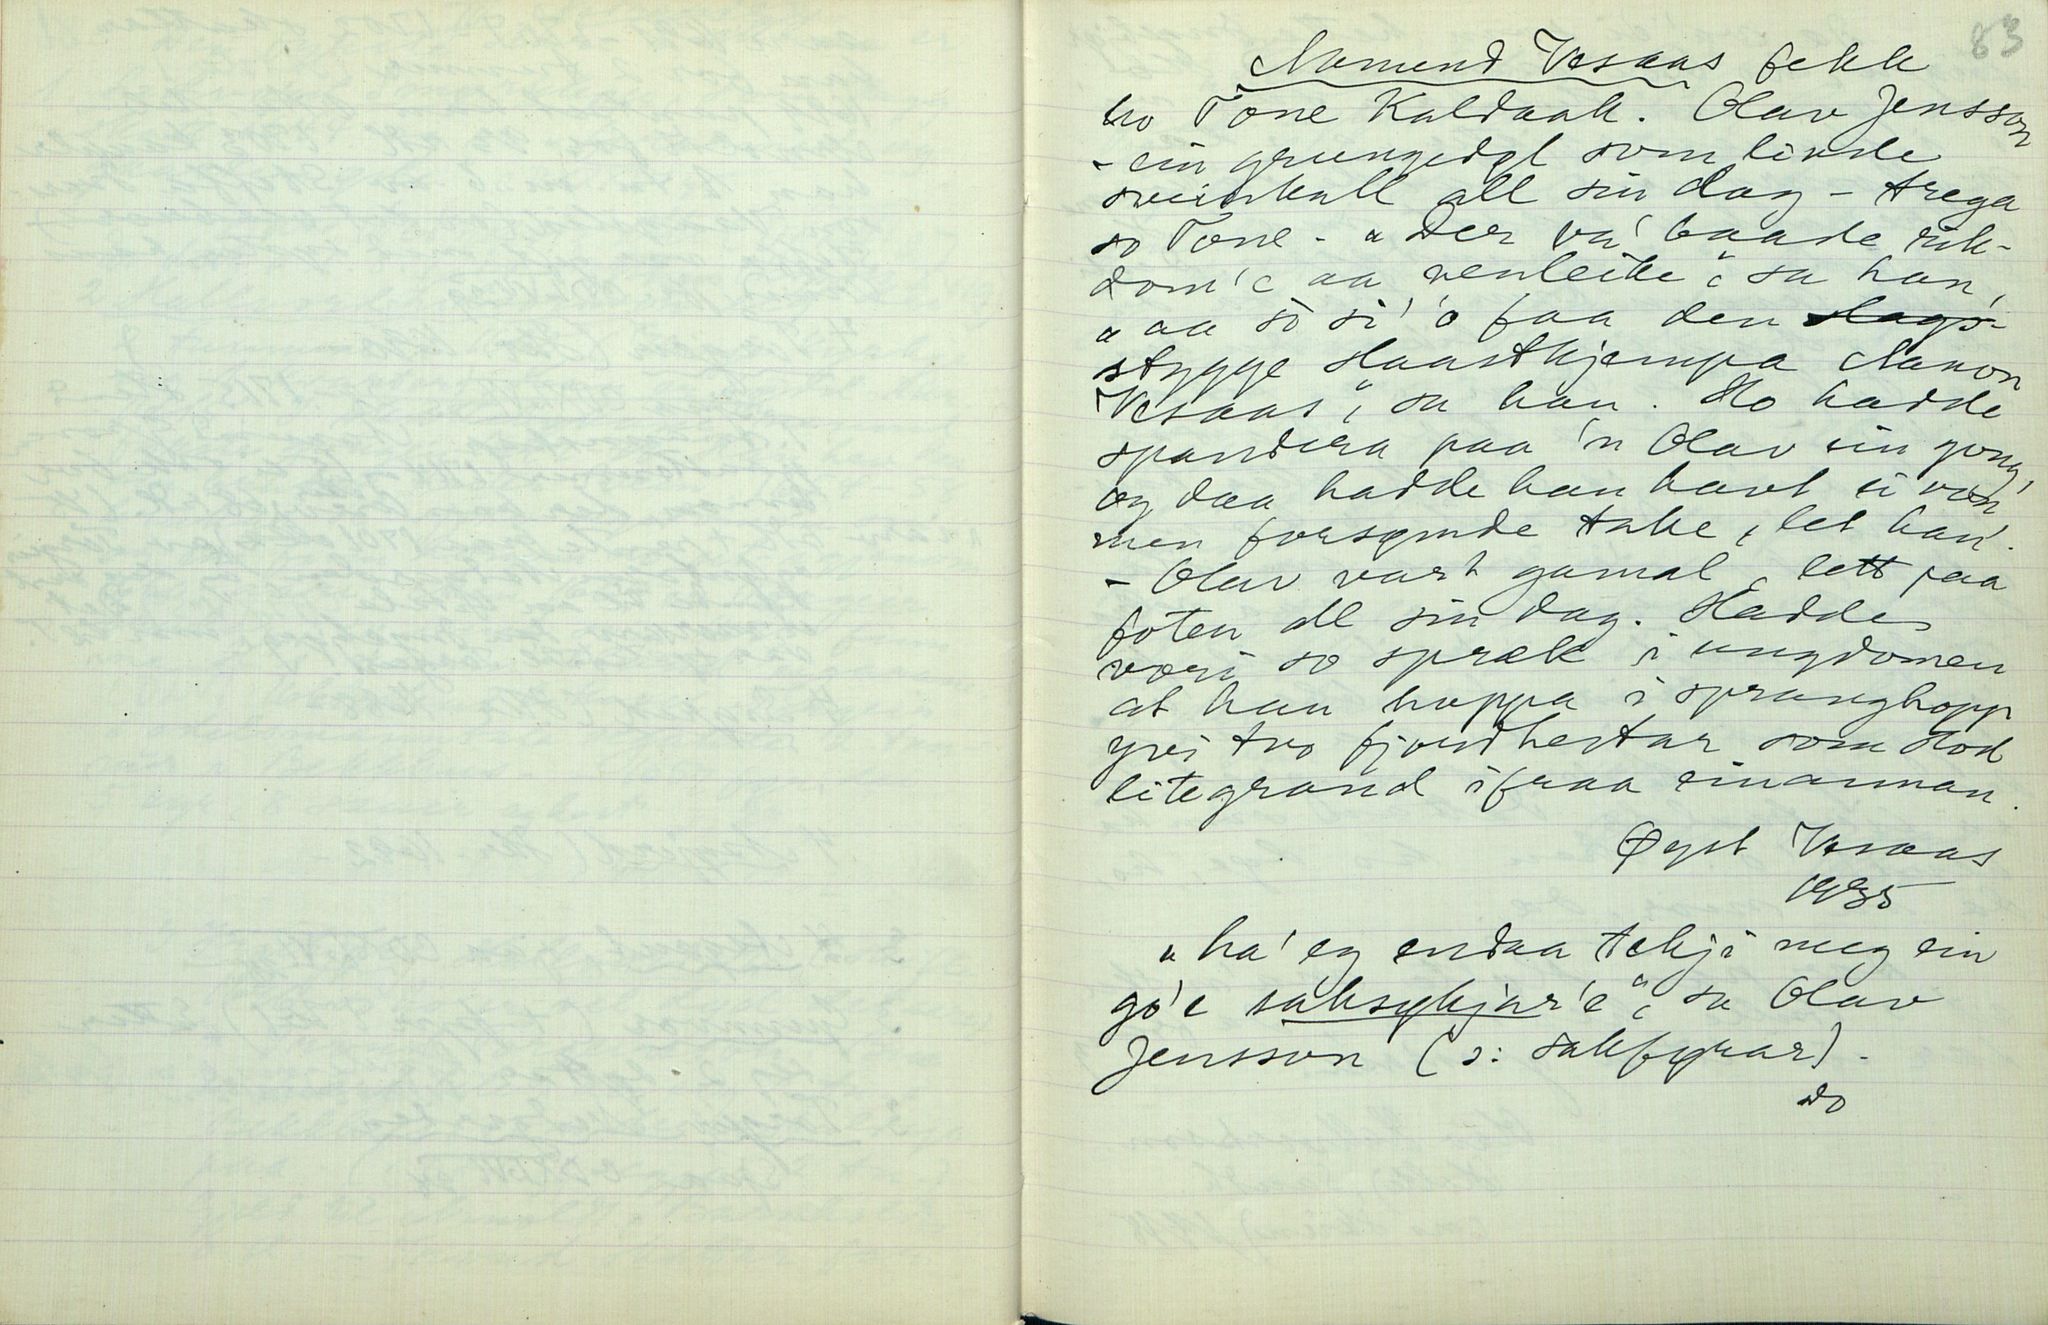 83
Aamund Vesaas fekk
ho Tone Kaldaak. Olav Jensson
- ein som livde
sveinkall all sin dag - trega
so Tone. "Der va' baade rik-
dom'e aa venleike", sa han,
"aa so si' o faa den slags-
stygge Haastkjempa Aamon
Vesaas", sa han. Ho hadde
spandera paa 'n Olav ein gong,
og daa hadde han havt ei von,
men forsømde take, let han.
- Olav vart gamal, lett paa
foten all sin dag. Hadde
vori so spræk i ungdomen
at han hoppa i spranghopp
yvi tvo fjordhestar som stod
litegrand ifraa einannan.
Øyst Vesaas
1935
"ha' eg endaa tekji meg ein
go'e saksykjar'e", sa Olav
Jensson (ɔ: sakfyrar).
do